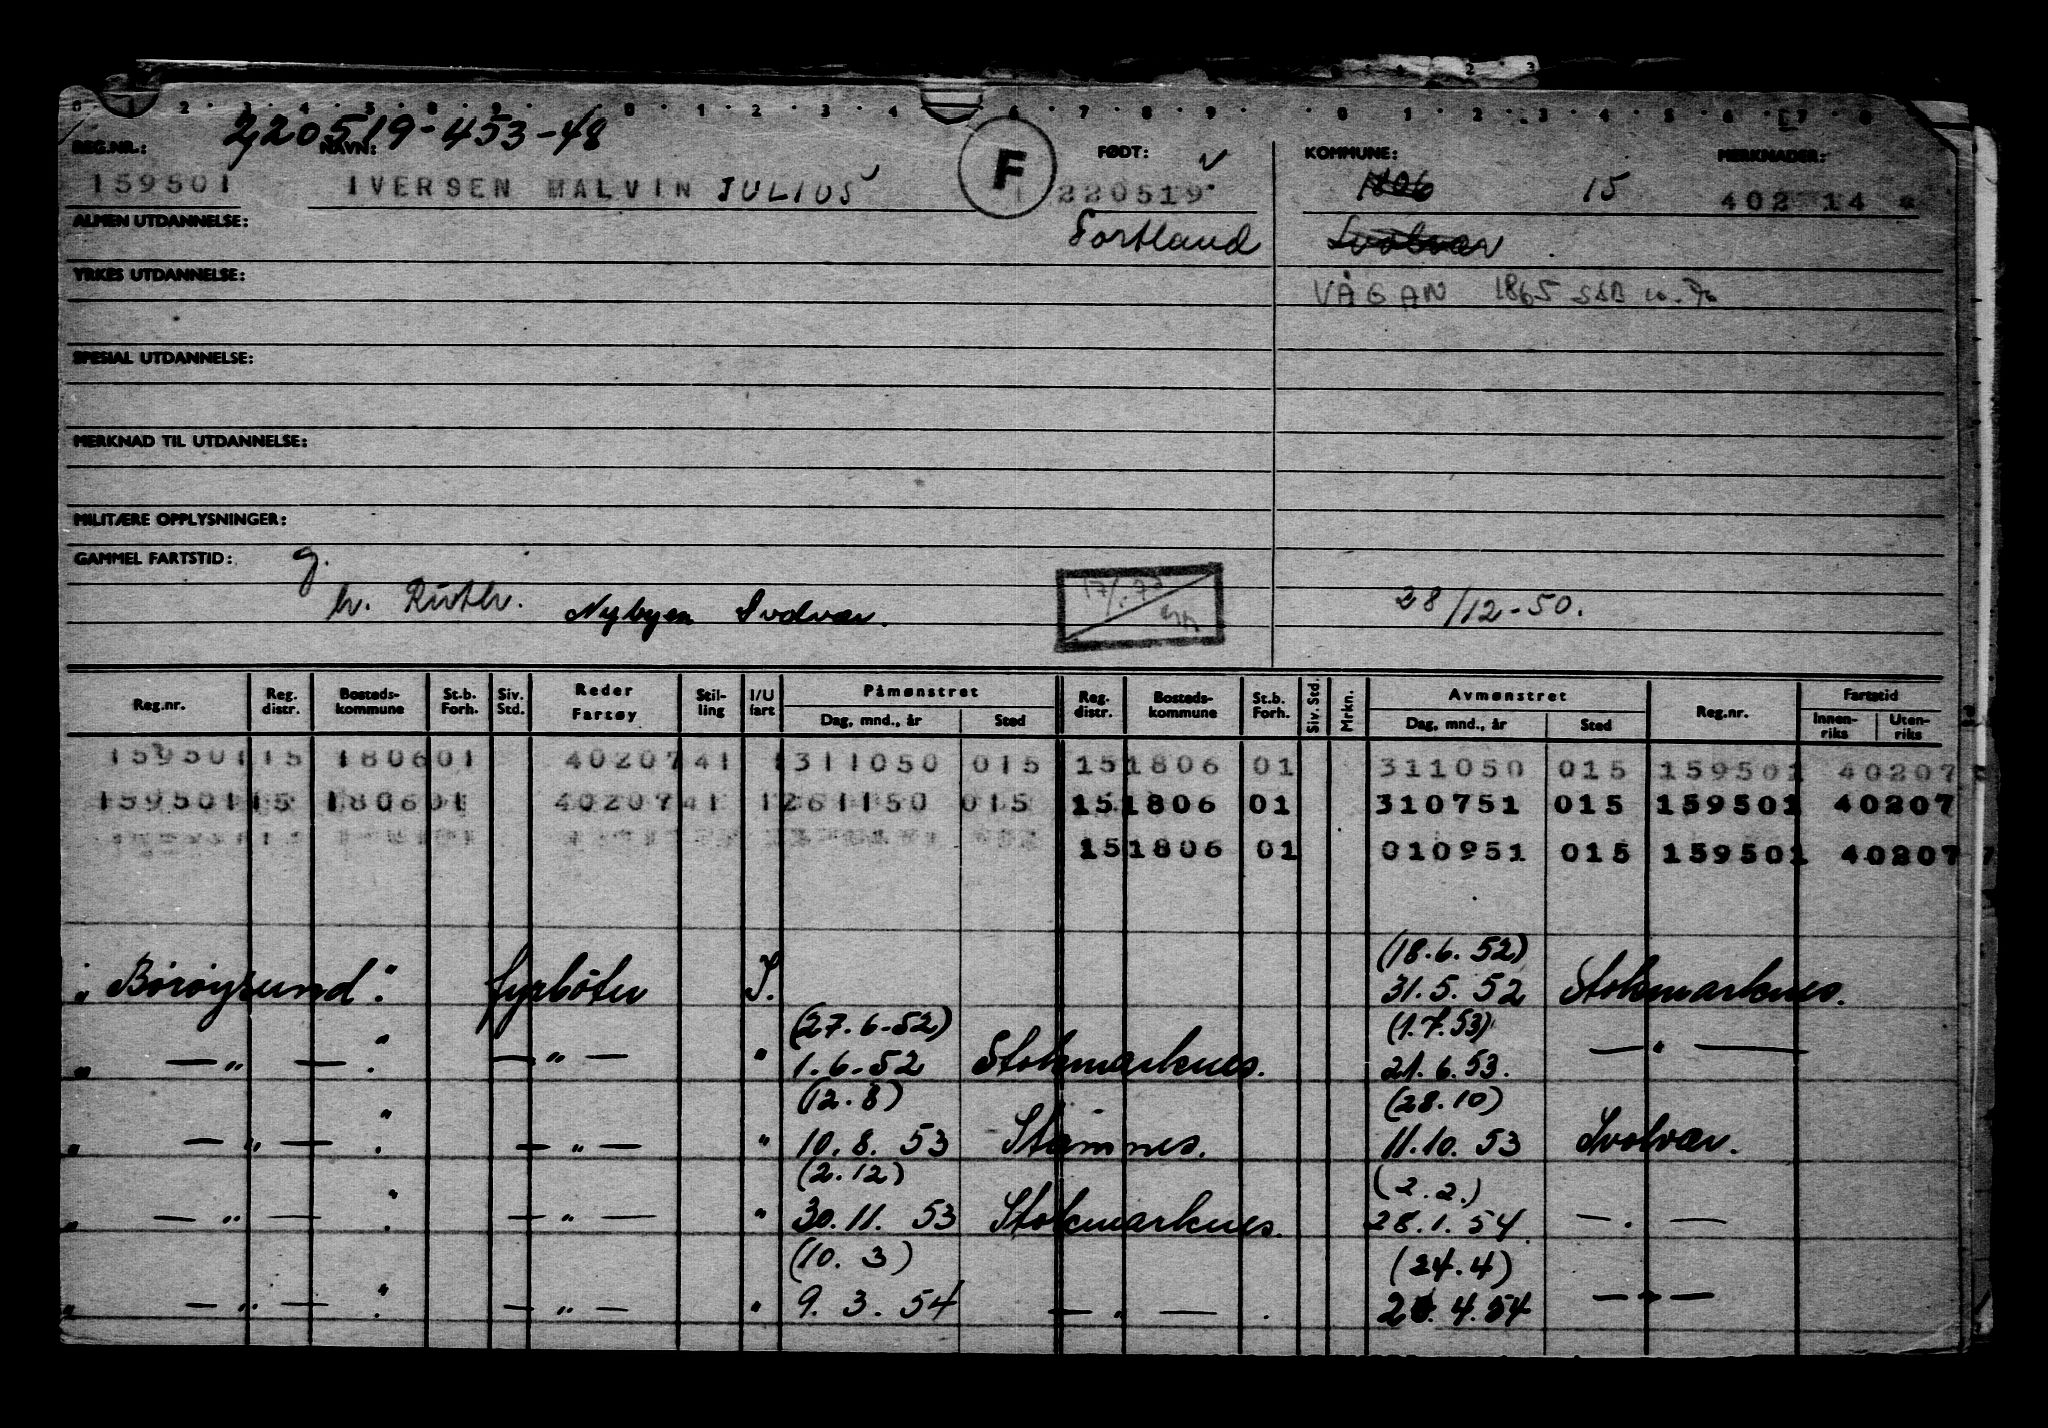 220519-453-48
REG.NR.: NAVN: F FØDT: KOMMUNE: MERKNADER:
159501 IVERSEN MALVIN JULIUS 220519 1806 15 402 14
ALMEN UTDANNELSE: Fortland Svolvær
YRKES UTDANNELSE: VÅGAN 1865
SPESIAL UTDANNELSE:
MERKNAD TIL UTDANNELSE:
MILITÆRE OPPLYSNINGER:
GAMMEL FARTSTID: g.
h. Ruth. Nybyen Svolvær. 28/12-50.
Reg.nr. Reg. distr. Bosteds-kommune St.b. Forh. Siv. Std. Reder Fartøy Stil-ling I/U fart Påmønstret Dag, mnd., år Sted Reg. distr. Bosteds-kommune St.b. Forh. Siv. Std. Mrkn. Avmønstret Dag, mnd., år Sted Reg.nr. Fartstid Innen-riks Uten-riks
159501 15 1806 01 40207 41 1 311050 015 15 1806 01 311050 015 159501 40207
159501 15 1806 01 40207 41 1 261150 015 15 1806 01 310751 015 159501 40207
15 1806 01 010951 015 159501 40207
(18.6.52)
"Börøysund". fyrbøter I. 31.5.52 Stokmarknes.
(27.6-52) (1.7.53)
" — " — ". — " — " 1.6-52 Stokmarknes. 21.6.53. — " —
(12.8) (28.10)
" — " — ". — " — " 10.8.53 Stamnes. 11.10.53 Svolvær.
(2.12) (2.2.)
" — " — ". — " — " 30.11.53 Stokmarknes. 28.1.54. — . —
(10.3) (24.4)
" — " — ". — " — " 9.3.54 — " — . 4.54 — " —